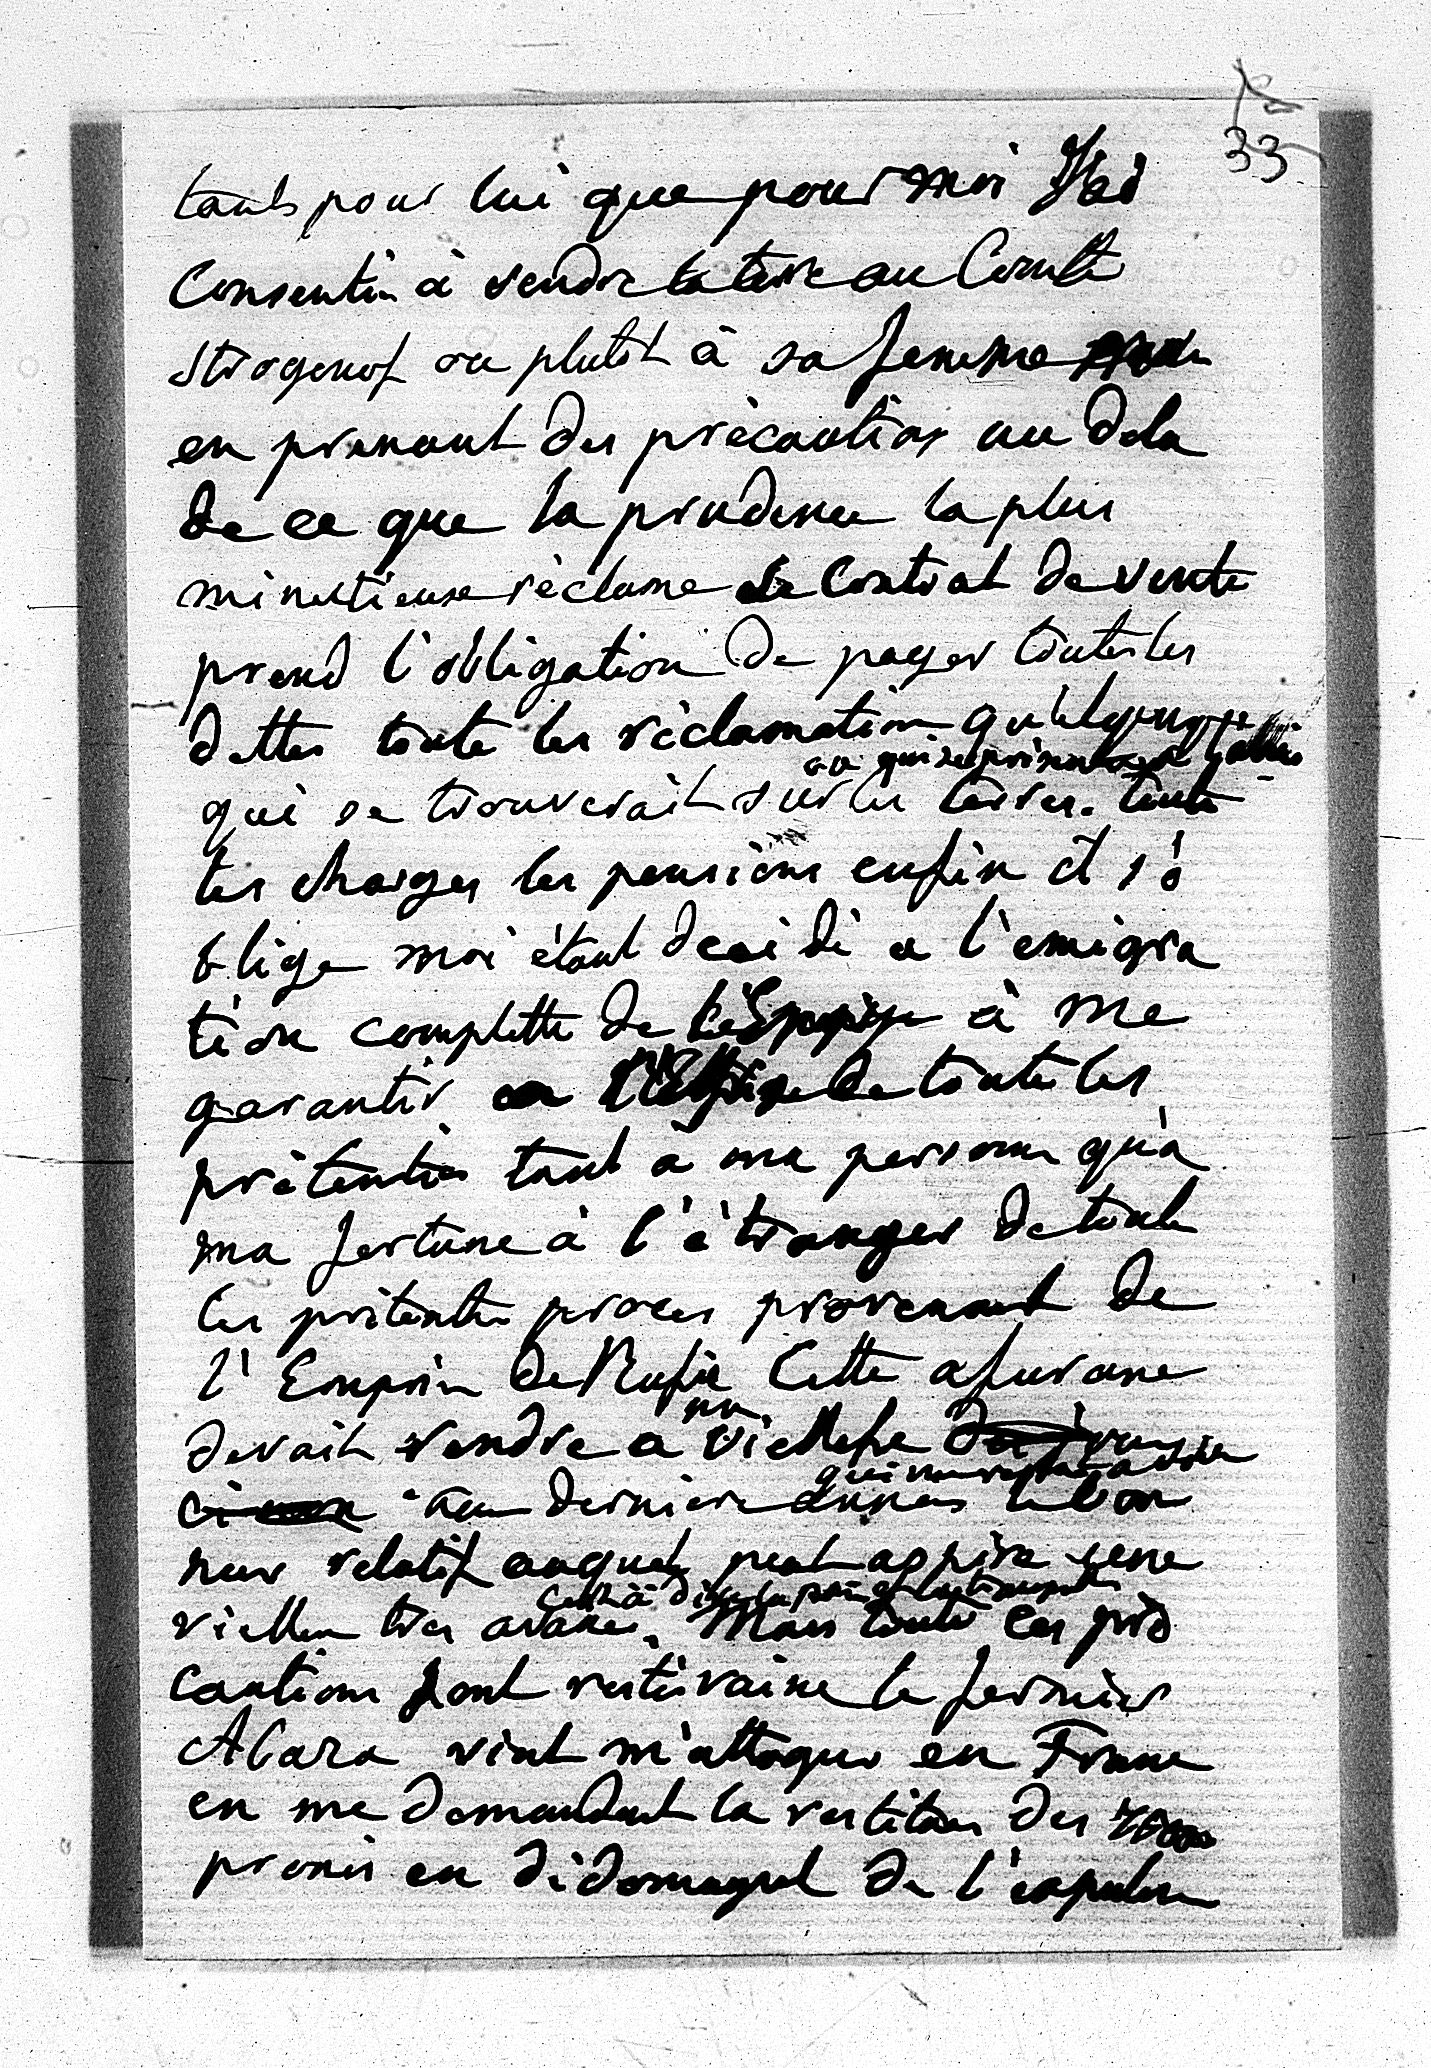 33
tants pour lui que pour moi J'ai
Consentis à vendre la terre au Comte
Strogonof ou plutot à sa femme
en prenant des précautions au dela
de ce que la prudence la plus
minutieuse réclame le Contrat de vente
prend l'obligation de payer toutes les
dettes toute les réclamation quelquonque
ou qui se
qui se trouverait sur les terres. toute
les charges les pensions enfin il s'o
blige moi étant decidé a l'emigra
tion complette de à me
garantir de toute les
prétention tant à ma personne qu'a
ma fortune à l'étranger de toute
les pretendu proces provenant de
l'Empire de Rusie Cette assurance
devait rendre a ma viellesse
au derniere années le bon
heur relatif auquel peut aspire une
c'est à dire la paix et
viellesse tres avancé. Mais toute ces pré
cautions sont resté vaine le fermier
Abaza vint m'attaquer en France
en me demandant la restitution des
promis en dédomagement de l'expulsion